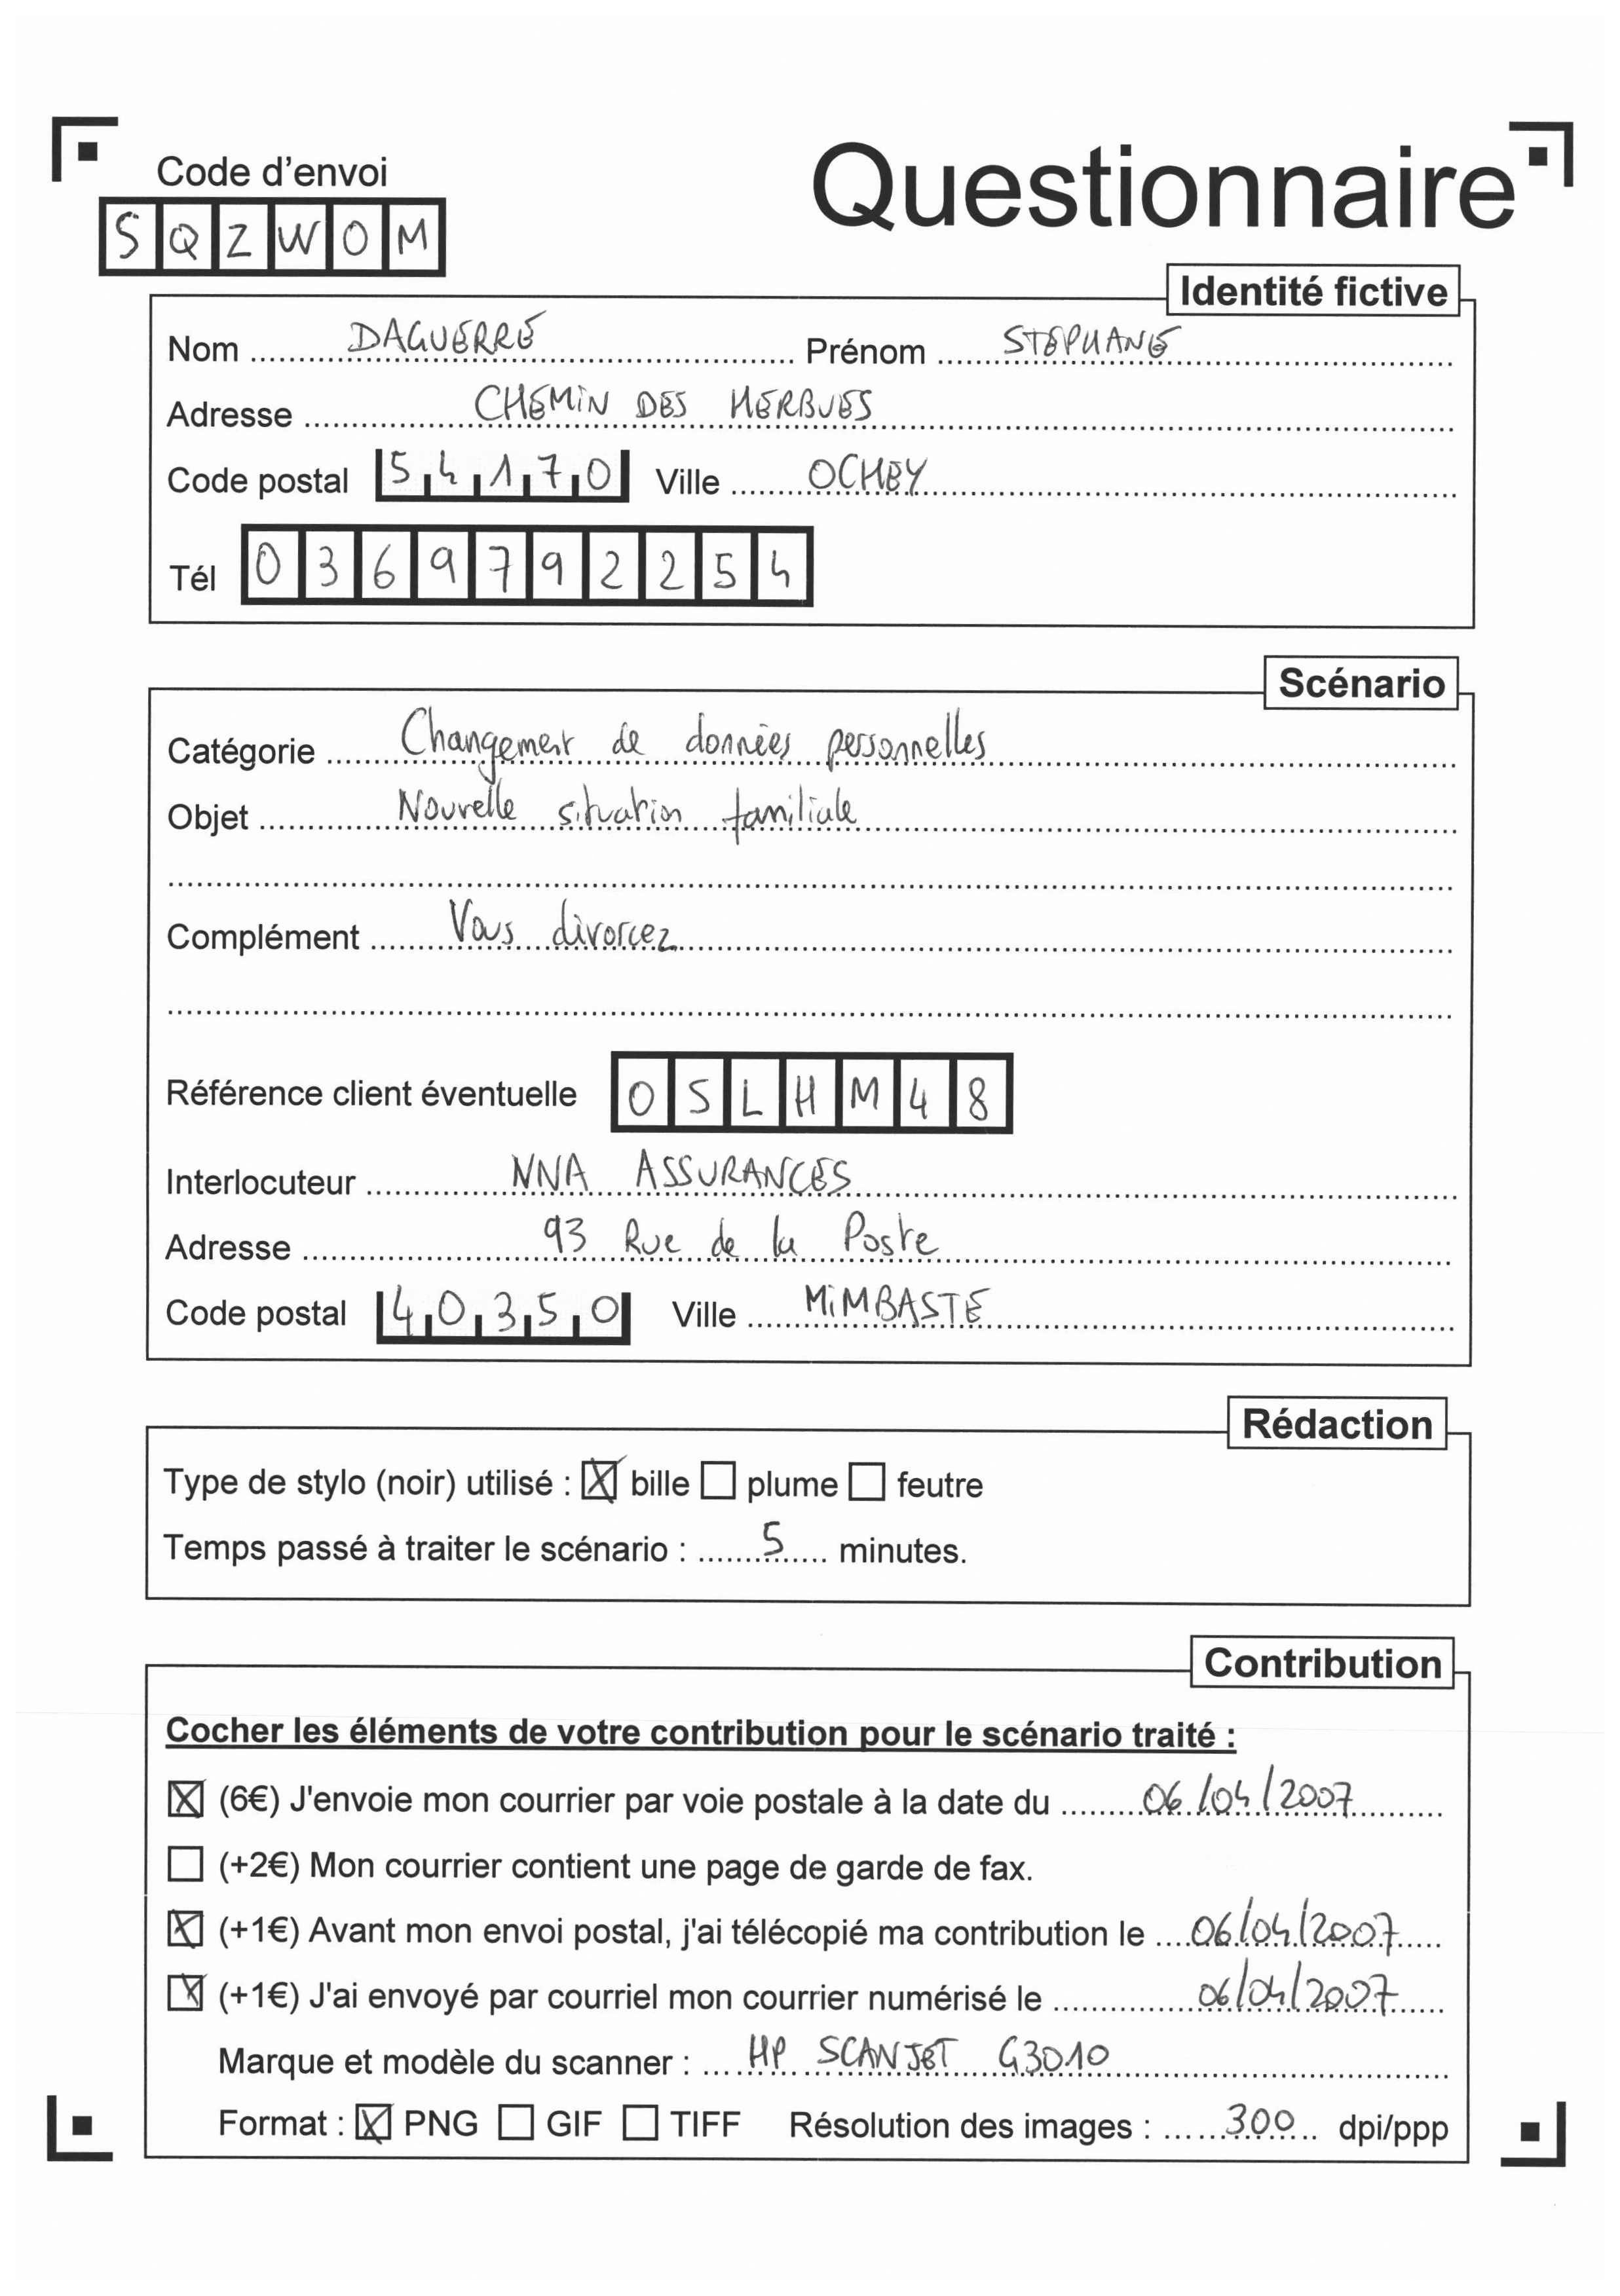 Code d'envoi
Questionnaire
SQZWOM
Identité fictive
Nom DAGUERRE Prénom STEPHANE
Adresse CHEMIN DES HERBUES
Code postal 54170 Ville OCHEY
Tél 0369792254
Scénario
Catégorie Changement de données personnelles
Objet Nouvelle situation familiale
Complément Vous divorcez
Référence client éventuelle OSLHM48
Interlocuteur NNA ASSURANCES
Adresse 93 Rue de la Poste
Code postal 40350 Ville MIMBASTE
Rédaction
Type de stylo (noir) utilisé : ☒ bille ☐ plume ☐ feutre
Temps passé à traiter le scénario : 5 minutes.
Contribution
Cocher les éléments de votre contribution pour le scénario traité :
☒ (6€) J'envoie mon courrier par voie postale à la date du 06/04/2007
☐ (+2€) Mon courrier contient une page de garde de fax.
☒ (+1€) Avant mon envoi postal, j'ai télécopié ma contribution le 06/04/2007
☒ (+1€) J'ai envoyé par courriel mon courrier numérisé le 06/04/2007
Marque et modèle du scanner : HP SCANJET G3010
Format : ☒ PNG ☐ GIF ☐ TIFF Résolution des images : 300 dpi/ppp